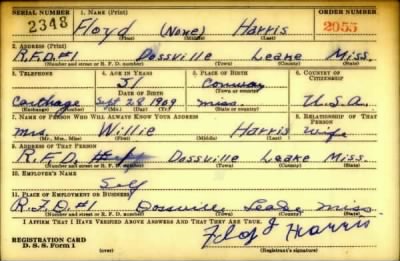 SERIAL NUMBER 1. NAME (Print) ORDER NUMBER
2348 Floyd (None) Harris 2055
(First) (Middle) (Last)
2. ADDRESS (Print)
R.F.D.#1 Dossville Leake Miss.
(Number and street or R. F. D. number) (Town) (County) (State)
3. TELEPHONE 4. AGE IN YEARS 5. PLACE OF BIRTH 6. COUNTRY OF CITIZENSHIP
31 Conway
DATE OF BIRTH (Town or county)
Carthage Sept 28 1909 Miss. U.S.A.
(Exchange) (Number) (Mo.) (Day) (Yr.) (State or country)
7. NAME OF PERSON WHO WILL ALWAYS KNOW YOUR ADDRESS 8. RELATIONSHIP OF THAT PERSON
Mrs. Willie Harris wife
(Mr., Mrs., Miss) (First) (Middle) (Last)
9. ADDRESS OF THAT PERSON
R.F.D. Dossville Leake Miss.
(Number and street or R. F. D. number) (Town) (County) (State)
10. EMPLOYER'S NAME
Self
11. PLACE OF EMPLOYMENT OR BUSINESS
R.F.D.#1 Dossville Leake Miss.
(Number and street or R. F. D. number) (Town) (County) (State)
I AFFIRM THAT I HAVE VERIFIED ABOVE ANSWERS AND THAT THEY ARE TRUE.
REGISTRATION CARD
D. S. S. Form 1
Floyd Harris
(Registrant's signature)